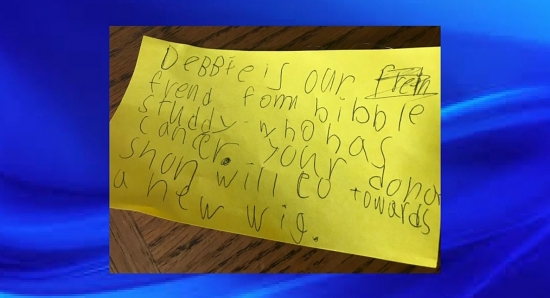 DeBBie is our
frend fom bibble
studdy who has
cancer. your dona
shon will Go towards
a new wig.